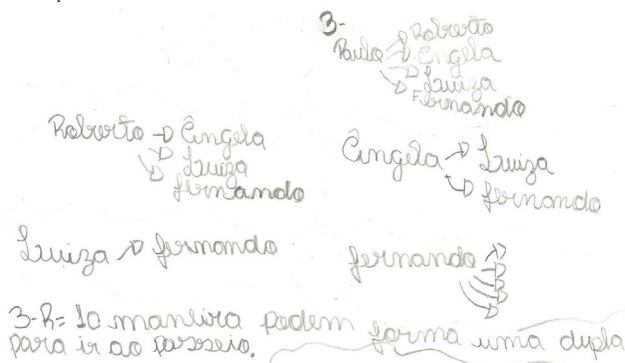 3-
Paulo → Roberto
→ Ângela
→ Luiza
→ Fernando
Roberto → Ângela
→ Luiza
→ fernando
Ângela → Luiza
→ fernando
Luiza → fernando
fernando →
3-R= 10 maneira podem forma uma dupla
para ir ao passeio.